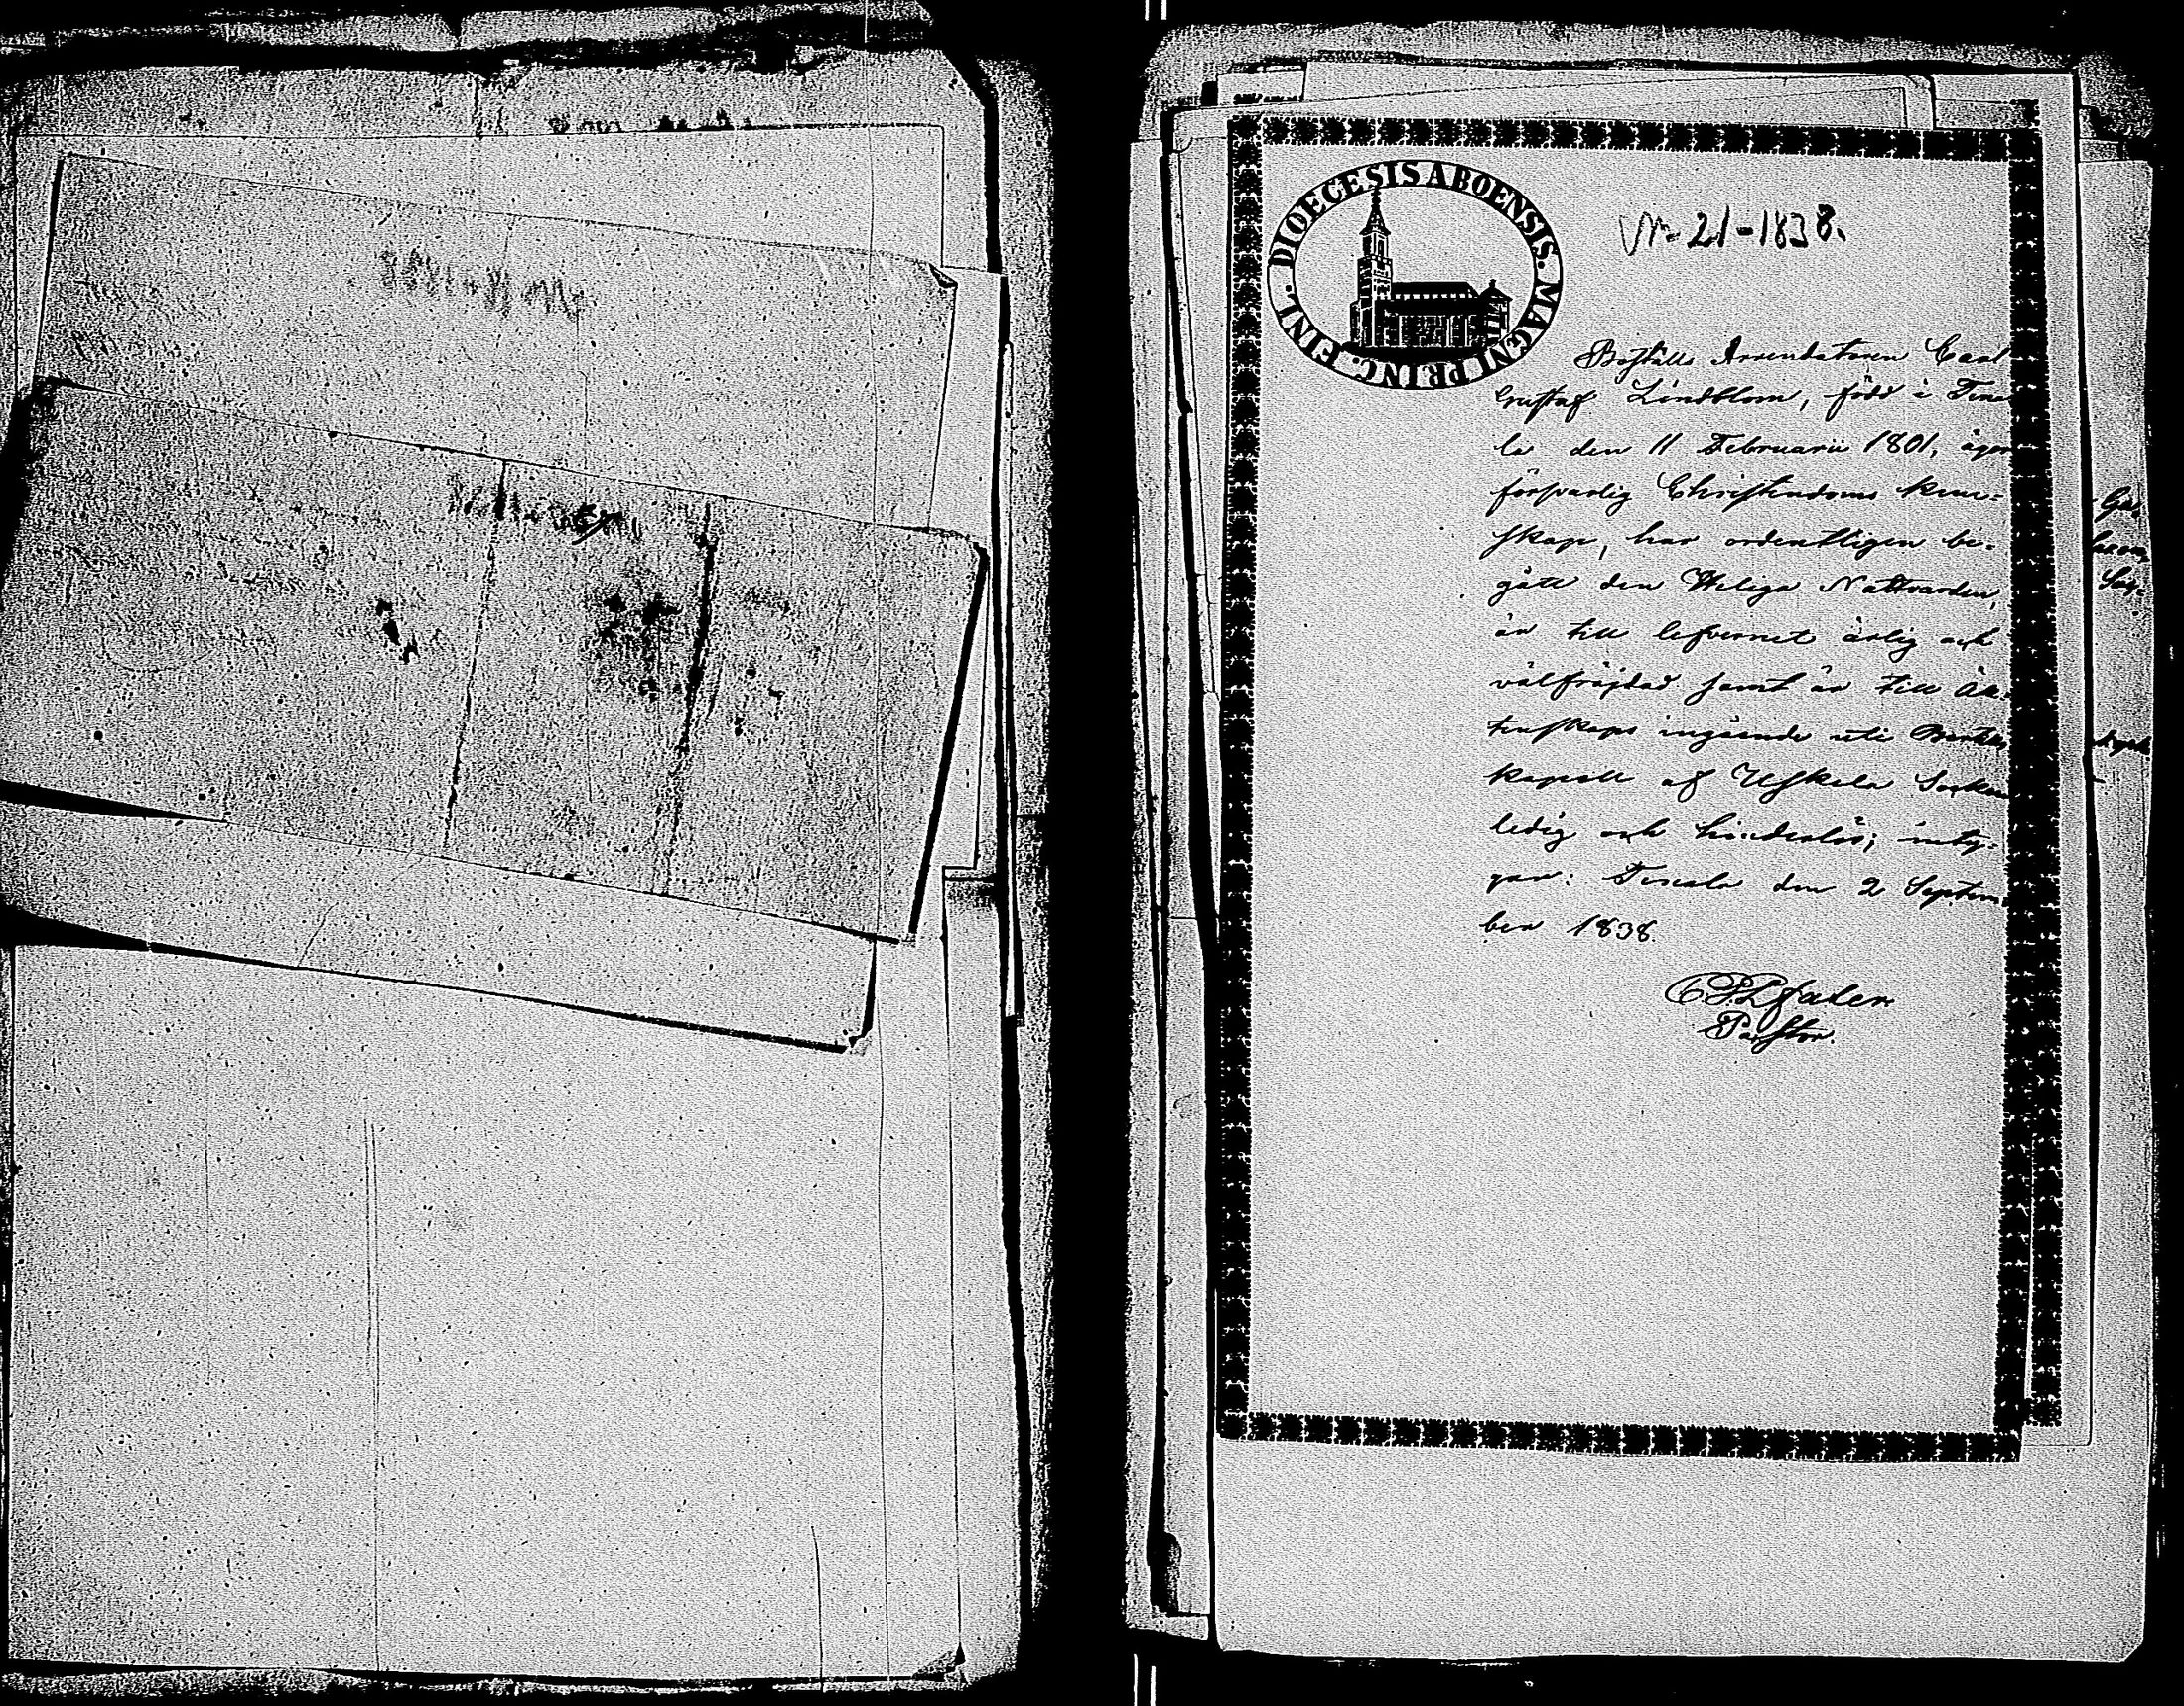 DIOECESIS ABOENSIS. MAGNI PRINC. FINL.
No 21-1838.
Boställs Arrendatoren Carl
Gustaf Lindblom, född i
la den 11 Februarii 1801, äger
försvarlig Christendoms kun-
skap, har ordentligen be-
gått den Heliga Nattvarden,
är till lefvernet ärlig och
välfräjdad samt är till Äk-
tenskaps ingående uti
kapell af Uskela Socken
ledig och hinderlös; inty-
gar: den 2 Septem
ber 1838.
Pastor.